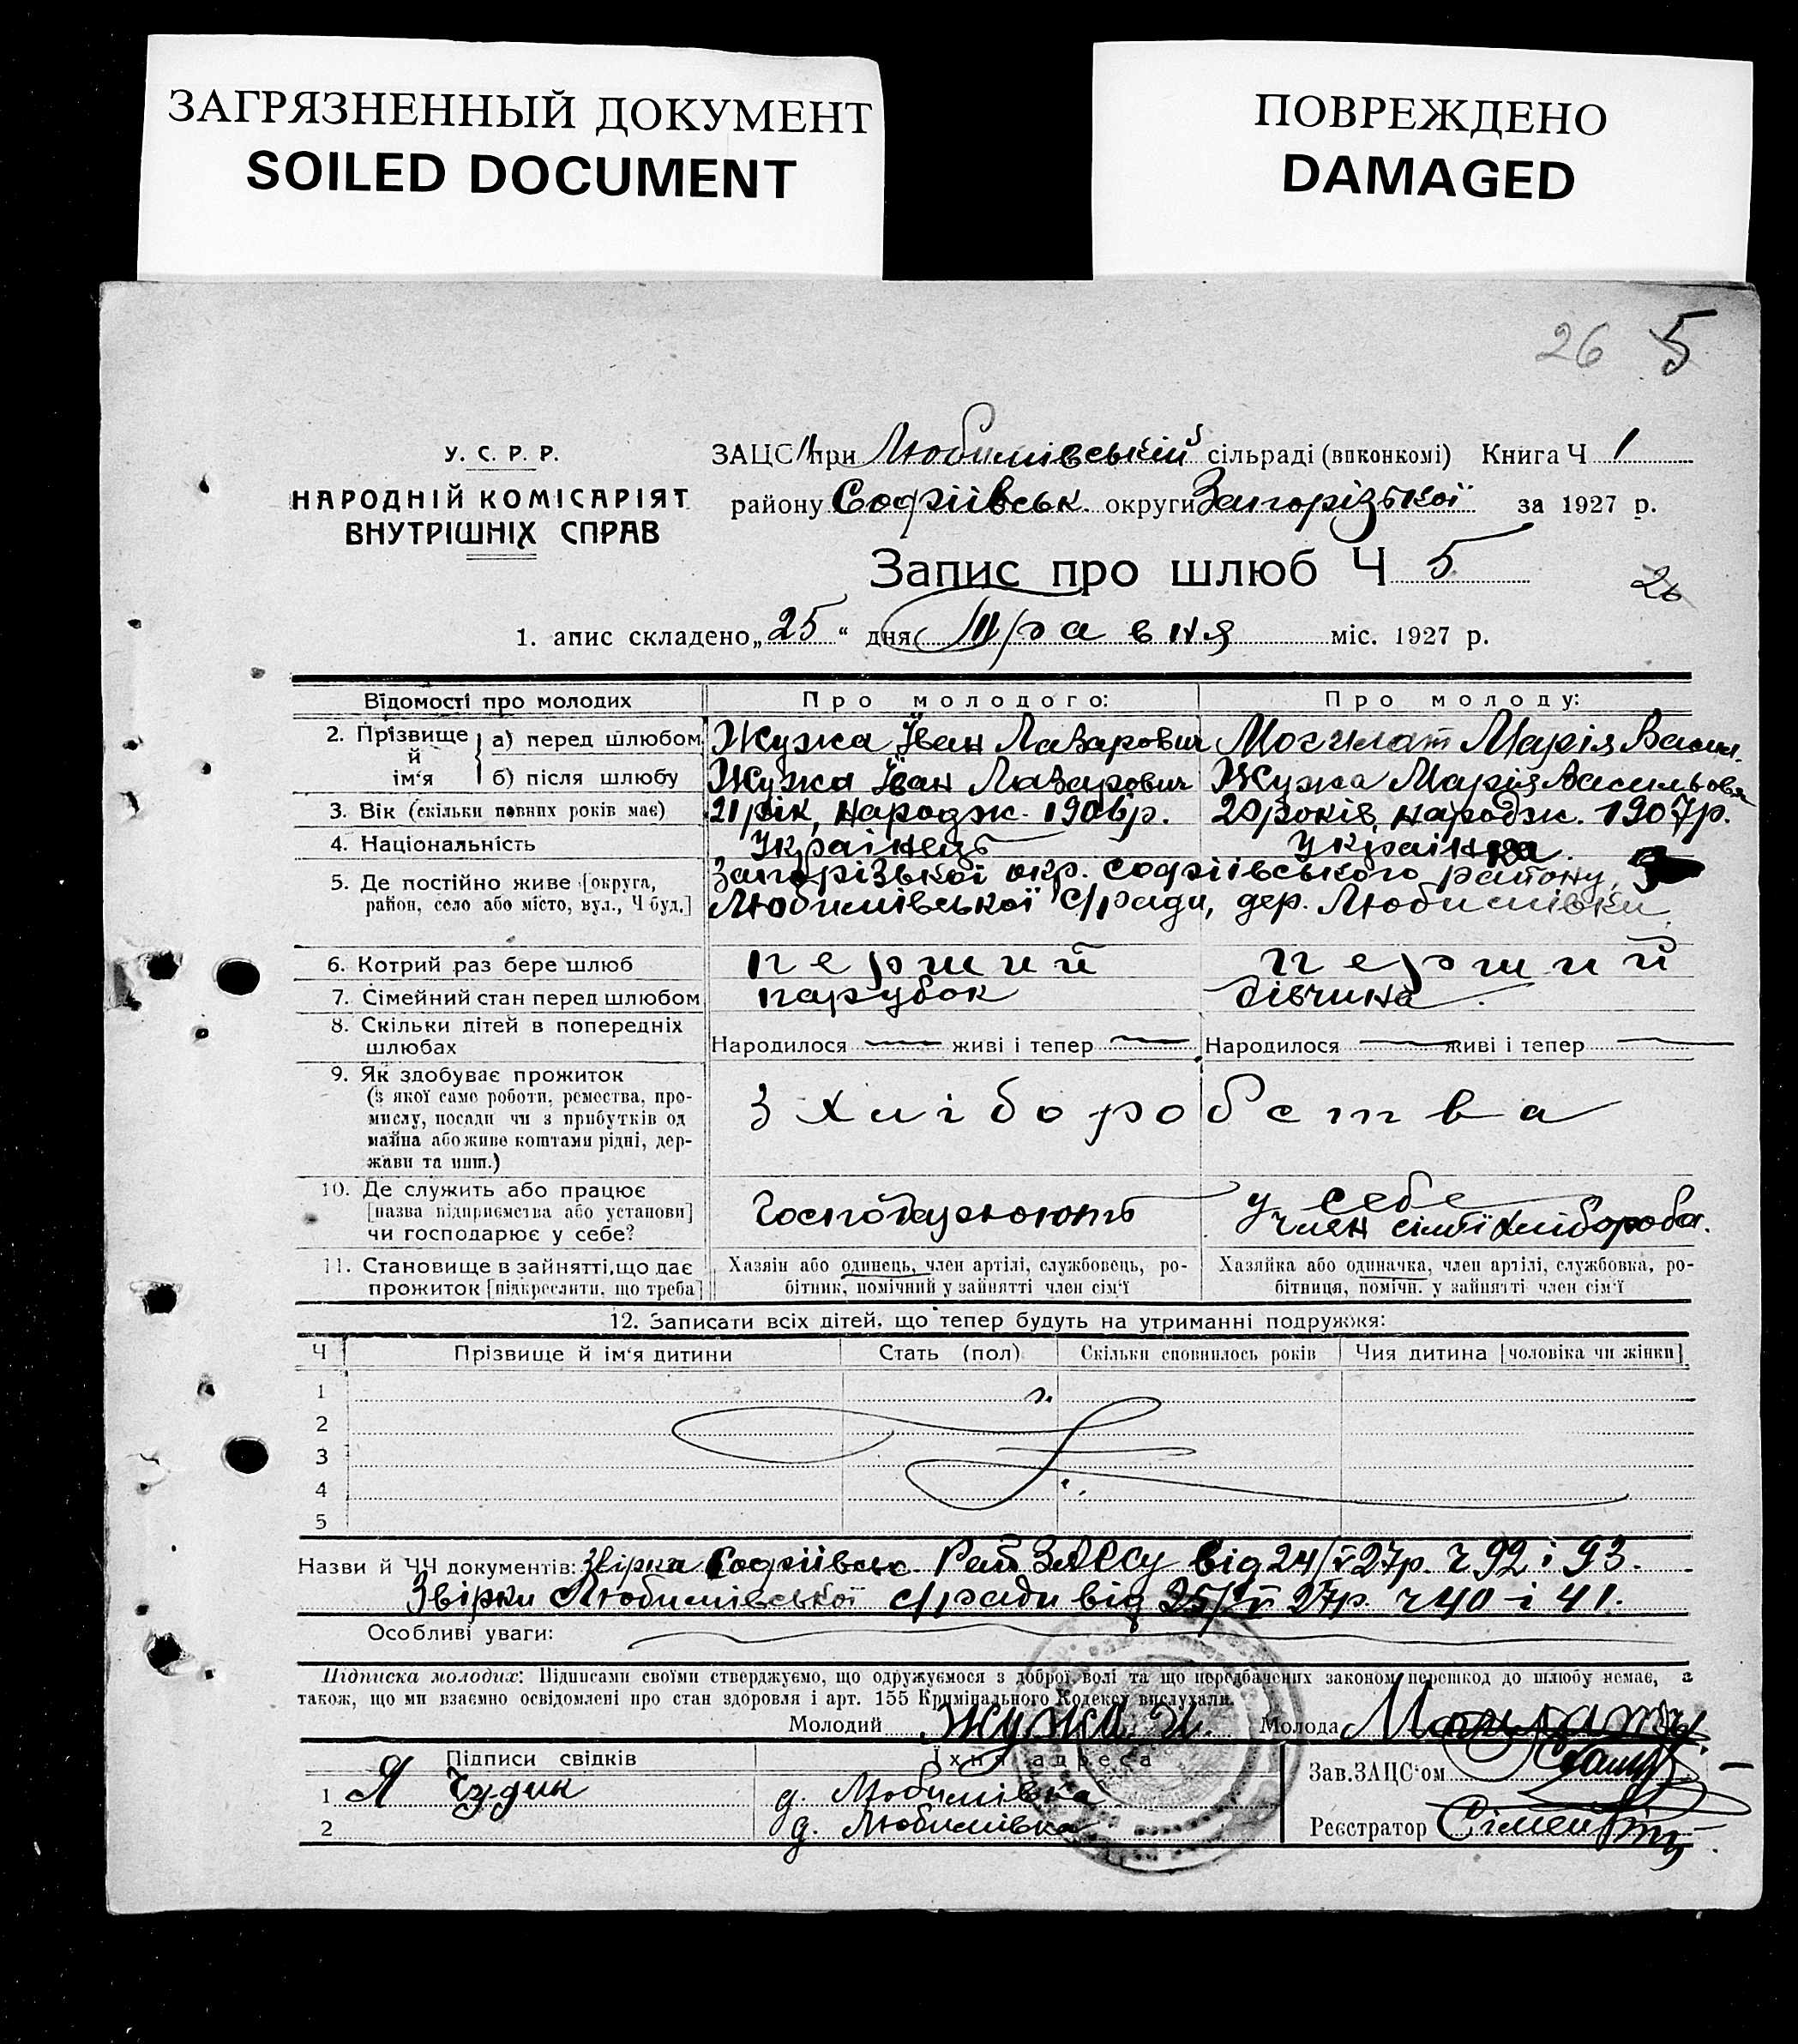 ЗАГРЯЗНЕННЫЙ ДОКУМЕНТ
SOILED DOCUMENT
ПОВРЕЖДЕНО
DAMAGED
26 5
У. С. Р. Р.
НАРОДНІЙ КОМІСАРІЯТ
ВНУТРІШНІХ СПРАВ
ЗАЦС при Любимівській сільраді (виконкомі) Книга Ч 1
району Софіївськ. округи Запорізької за 1927 р.
Запис про шлюб Ч 5
26
1. апис складено „25“ дня Травня міс. 1927 р.
Відомості про молодих Про молодого: Про молоду:
2. Прізвище й ім‘я а) перед шлюбом Жужа Іван Лазарович Могилат Марія Васил.
б) після шлюбу Жужа Іван Лазарович Жужа Марія Васильовн
3. Вік (скільки повних років має) 21 рік, народж. 1906р. 20 років, народж. 1907р.
4. Національність Українець Українка.
5. Де постійно живе [округа, район, село або місто, вул., Ч буд.] Запорізької окр. Софіївського району,
Любимівської с/ради, дер. Любимівки
6. Котрий раз бере шлюб перший перший
7. Сімейний стан перед шлюбом парубок дівчина.
8. Скільки дітей в попередніх
шлюбах Народилося живі і тепер Народилося живі і тепер
9. Як здобуває прожиток
(з якої саме роботи, ремества, про-
мислу, посади чи з прибутків од
майна або живе коштами рідні, дер-
жави та инш.)
З хліборобства
10. Де служить або працює
[назва підприємства або установи]
чи господарює у себе?
Господарюють у себе
член сімї хлібороба.
11. Становище в зайнятті, що дає
прожиток [підкреслити, що треба]
Хазяїн або одинець, член артілі, службовець, ро-
бітник, помічний у зайнятті член сім‘ї
Хазяйка або одиначка, член артілі, службовка, ро-
бітниця, помічн. у зайнятті член сім‘ї
12. Записати всіх дітей, що тепер будуть на утриманні подружжя:
Ч Прізвище й ім‘я дитини Стать (пол) Скільки сповнилось років Чия дитина [чоловіка чи жінки]
1
2
3
4
5
Назви й ЧЧ документів: Звірка Софіївськ. Рай ЗАГСу від 24/V 27р. ч 92 і 93.
Звірки Любимівської с/ради від 25/V 27р. ч 40 і 41.
Особливі уваги:
Підписка молодих: Підписами своїми стверджуємо, що одружуємося з доброї волі та що передбачених законом перешкод до шлюбу немає, а
також, що ми взаємно освідомлені про стан здоровля і арт. 155 Кримінального Кодексу вислухали.
Молодий Жужа И. Молода
Підписи свідків Їхня адреса
1 Я Чудик д. Любимівка
2 д. Любимівка
Зав. ЗАЦС‘ом
Реєстратор